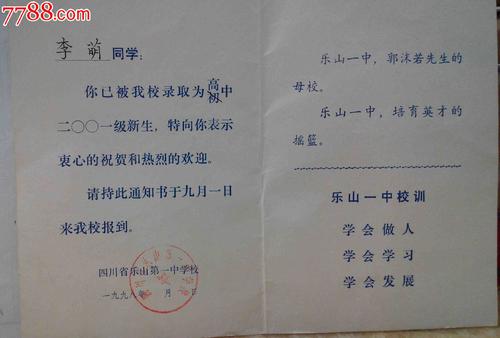 7788.com
李萌 同学：
你已被我校录取为高初中
二○○一级新生，特向你表示
衷心的祝贺和热烈的欢迎。
请持此通知书于九月一日
来我校报到。
四川省乐山第一中学校
一九九八年 月 日
乐山一中，郭沫若先生的
母校。
乐山一中，培育英才的
摇篮。
乐山一中校训
学会做人
学会学习
学会发展